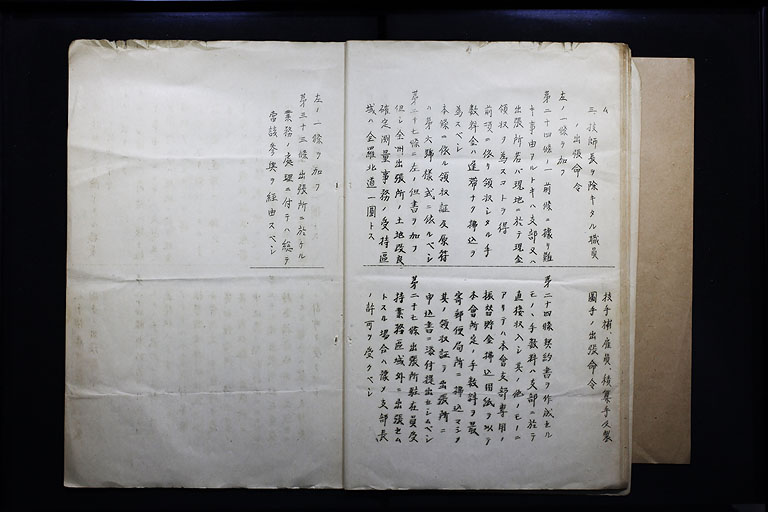 ム
三、技師長ヲ除キタル職員
ノ出張命令
左ノ一條ヲ加フ
第二十四條ノ一 前條ニ據リ難
キ事由アルトキハ支部又ハ
出張所若ハ現地ニ於テ現金
領収ヲ為スコトヲ得
前項ニ依リ領収シタル手
数料金ハ遅滞ナク拂込ヲ
為スベシ
本條ニ依ル領収証及原符
ハ第六號様式ニ依ルベシ
第二十七條ニ左ノ但書ヲ加フ
但シ全州出張所ノ土地改良
確定測量事務ノ受持區
域ハ全羅北道一圓トス
技手補、雇員、積算手及製
圖手ノ出張命令
第二十四條 契約書ヲ作成セル
モノノ手数料ハ支部ニ於テ
直接収入シ其ノ他ノモノニ
アリテハ本會支部専用ノ
振替貯金拂込用紙ヲ以テ
本會所定ノ手数料ヲ最
寄郵便局所ニ拂込マシメ
其ノ領収証ヲ出張所ニ
申込書ニ添付提出セシムベシ
第二十七條 出張所駐在員受
持業務區域外ニ出張セム
トスル場合ハ豫メ支部長
ノ許可ヲ受クベシ
左ノ一條ヲ加フ
第三十三條 出張所ニ於ケル
業務ノ處理ニ付テハ總テ
當該参與ヲ経由スベシ